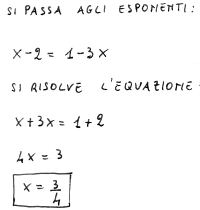 SI PASSA AGLI ESPONENTI:
x-2 = 1-3x
SI RISOLVE L'EQUAZIONE.
x+3x = 1+2
4x = 3
x = 3/4